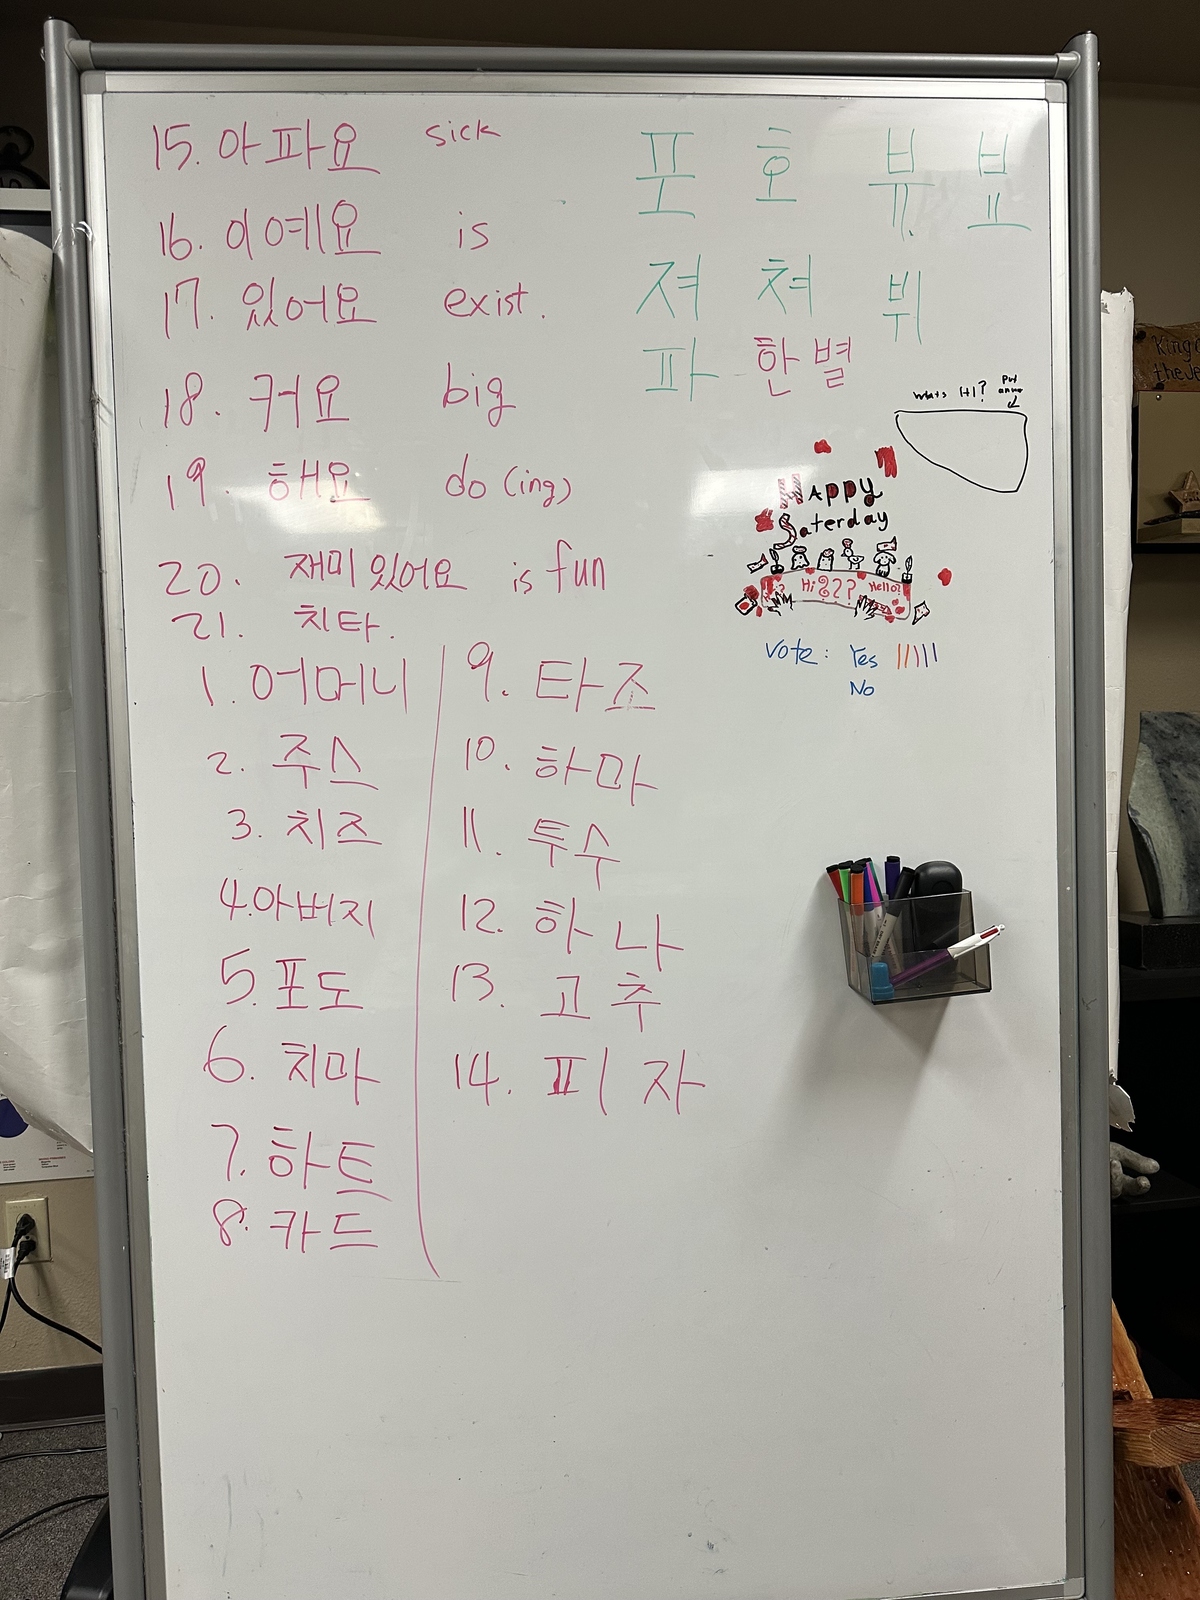 15. 아파요 sick
16. 이예요 is
17. 있어요 exist.
18. 커요 big
19. 해요 do (ing)
20. 재미있어요 is fun
21. 치타.
1. 어머니
2. 주스
3. 치즈
4. 아버지
5. 포도
6. 치마
7. 하트
8. 카드
9. 타조
10. 하마
11. 투수
12. 하나
13. 고추
14. 피자
포 호 뷰 뵤
져 쳐 뷔
파 한별
whats 1+1?
Happy
Saterday
Hi??? Hello?
Vote: Yes
No
King
the Je